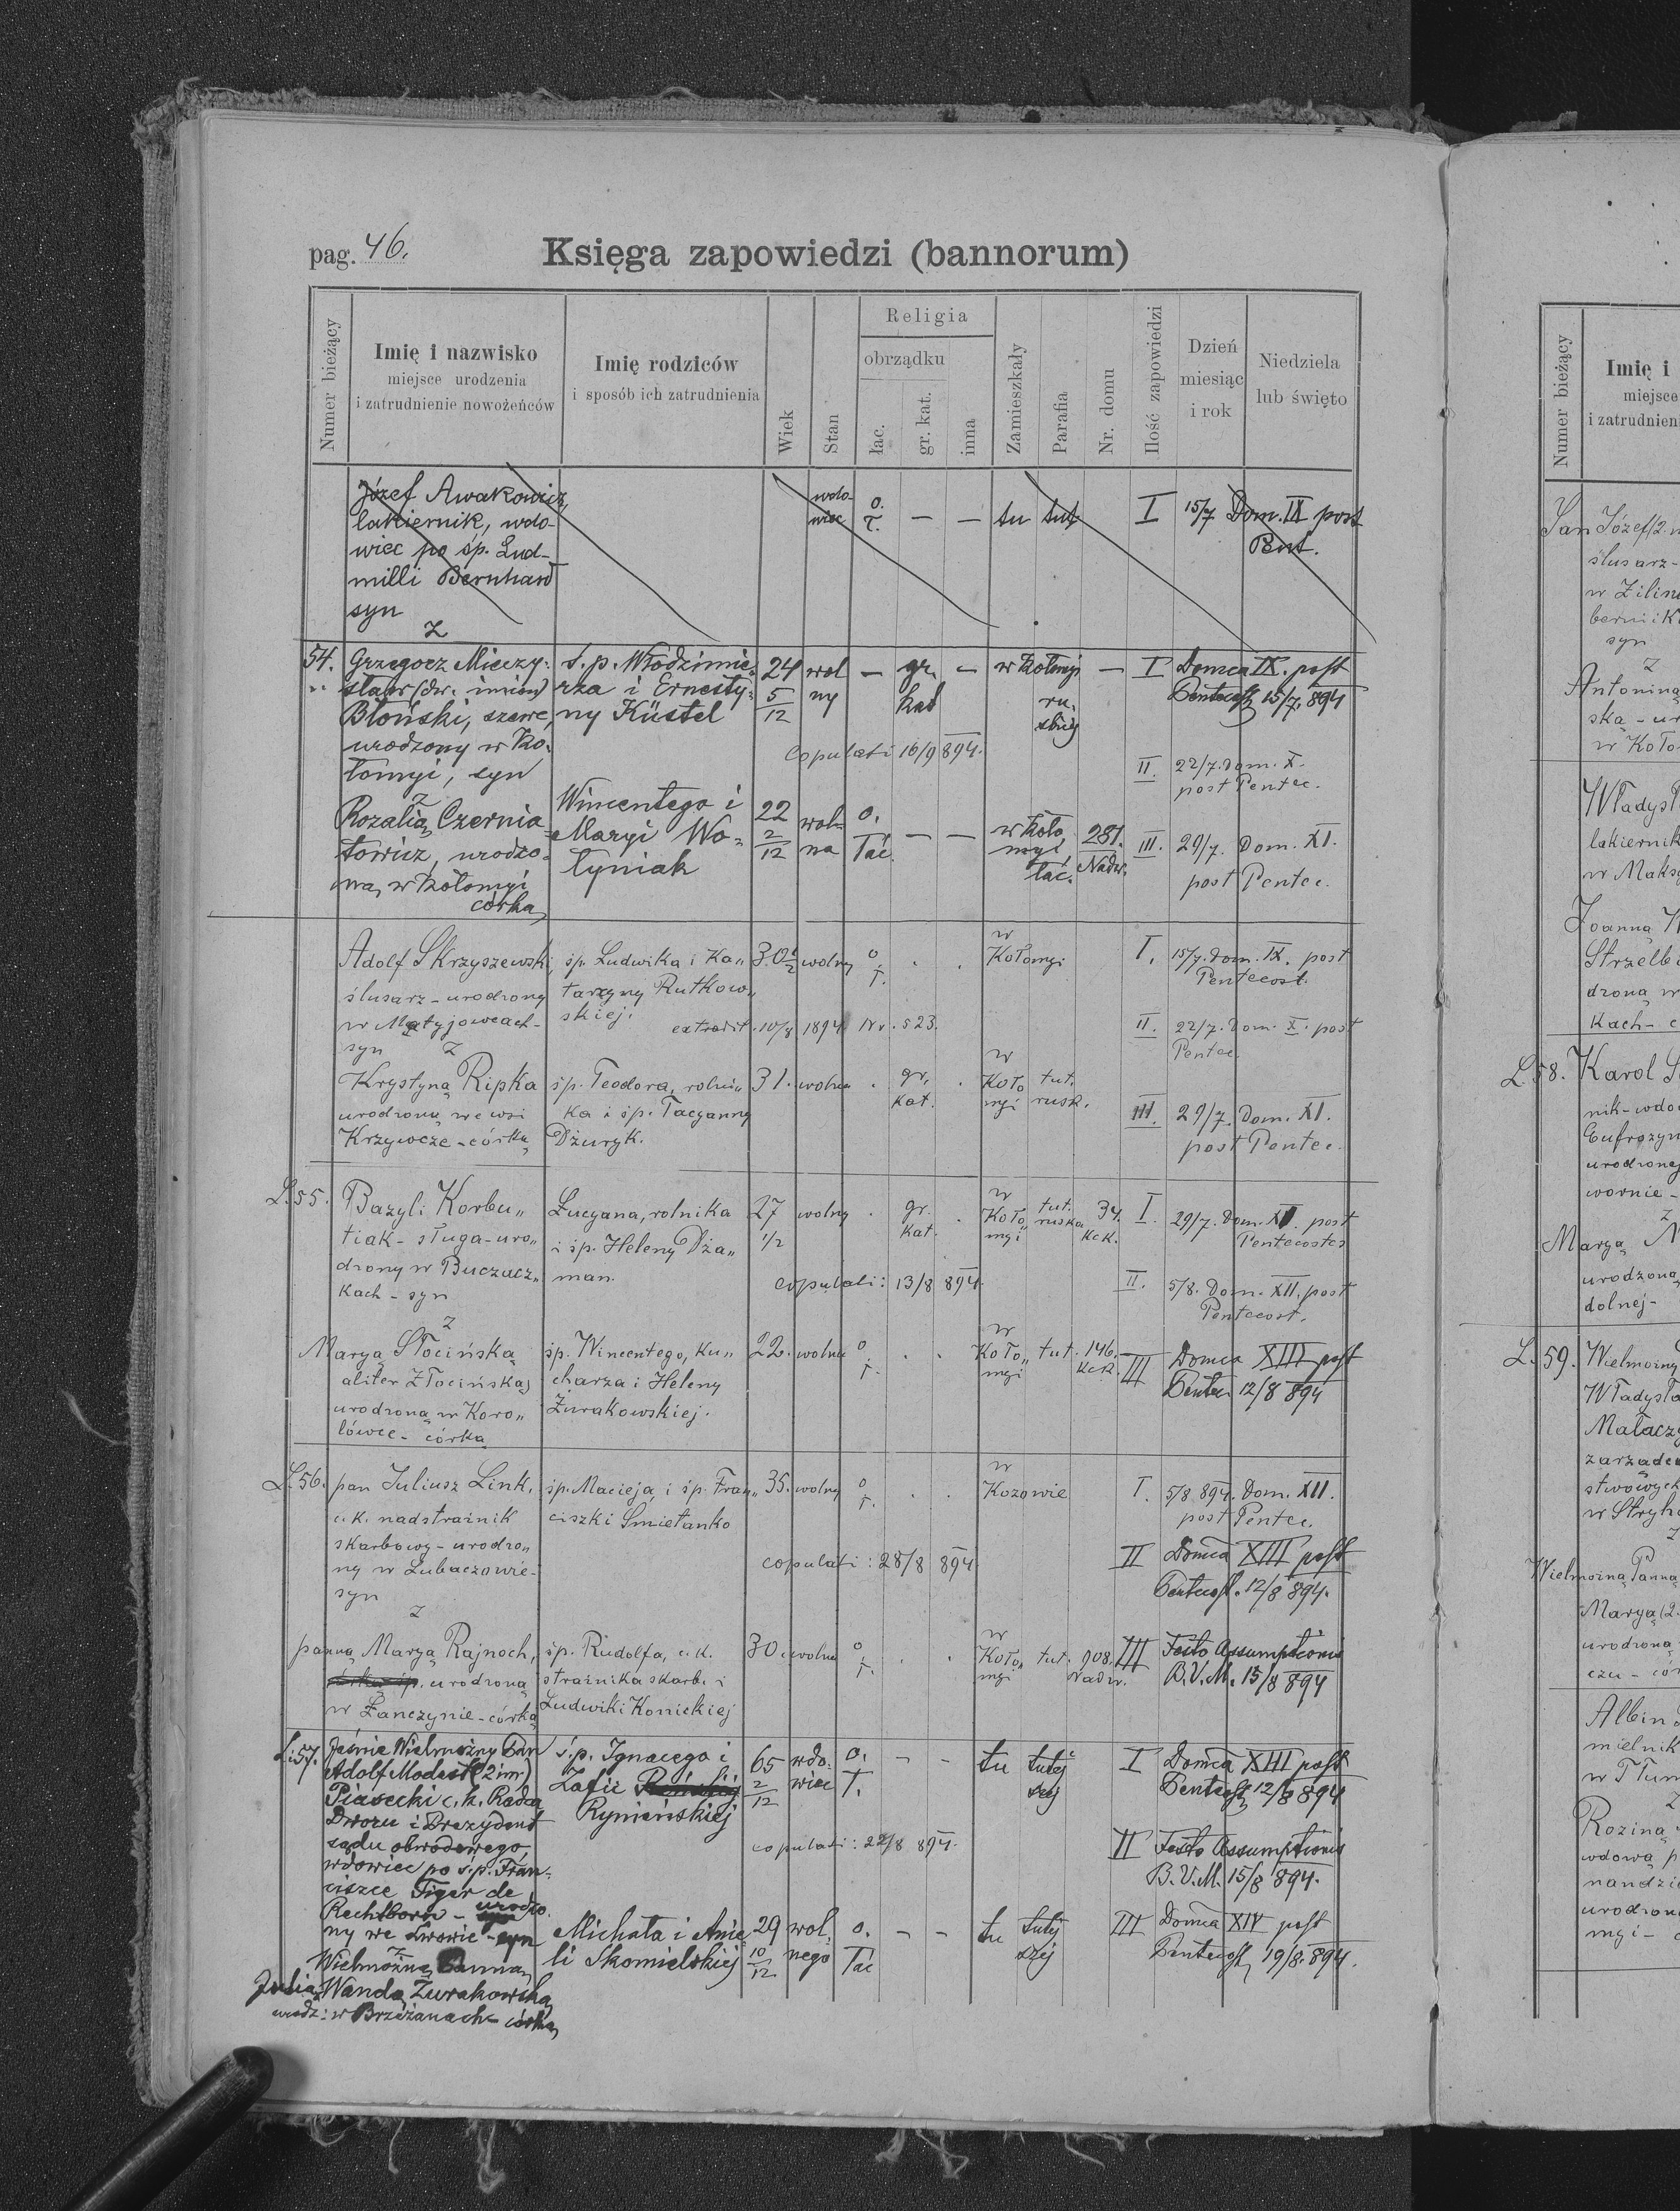 pag. 46.
Księga zapowiedzi (bannorum)
Numer bieżący
Imię i nazwisko
miejsce urodzenia
i zatrudnienie nowożeńców
Imię rodziców
i sposób ich zatrudnienia
Wiek
Stan
Religia
obrządku
łac.
gr. kat.
inna
Zamieszkały
Parafia
Nr. domu
Ilość zapowiedzi
Dzień
miesiąc
i rok
Niedziela
lub święto
Józef Awakowicz
lakiernik, wdo-
wiec po śp. Lud-
milli Bernhard
syn
z
wdo-
wiec
o.
ł. — — tu tut I 15/7 Dom. IX post
Pent.
54. Grzegorz Mieczy-
sław (dw. imion)
Błoński, szewc,
urodzony w Ko-
łomyi, syn
ś.p. Włodzimie-
rza i Ernesty-
ny Küstel
24 5/12
wol
ny
— gr. kat — w Kołomyi ru. — I Domca IX. post
Pentecost 15/7. 894
copulati 16/9 894.
II. 22/7. Dom. X.
post Pentec.
z
Rozalią Czernia-
towicz, urodzo-
ną w Kołomyi
córką
Wincentego i
Maryi Wo-
łyniak
22 2/12
wol-
na
o.
łać. — — w Koło
myi
łać.
281.
Nadw.
III. 29/7. Dom. XI.
post Pentec.
Adolf Skrzyszewski,
ślusarz - urodzony
w Matyjowcach -
syn z
śp. Ludwika i Ka„
tarzyny Rutkow„
skiej.
30 1/2 wolny o
ł. . . w
Kołomyi
I. 15/7. Dom. IX. post
Pentecost.
extradit. 10/8 1894 Nr. 523.
II. 22/7. Dom. X. post
Pentec.
Krystyną Ripka
urodzoną we wsi
Krzywcze - córką
śp. Teodora, rolni„
ka i śp. Tacyanny
Dżuryk.
31. wolna . gr.
kat. . w
Koło
myi
tut.
rusk.
III. 29/7. Dom. XI.
post Pentec.
L.55. Bazyli Korbu„
tiak - sługa - uro„
dzony w Buczacz„
kach - syn
z
Łucyana, rolnika
i śp. Heleny Dża„
man.
27
1/2
wolny . gr.
kat. . w
Koło„
myi
tut.
ruska
34.
KcK.
I. 29/7. Dom. XI. post
Pentecostes
copulati: 13/8 894.
II. 5/8. Dom. XII. post
Pentecost.
Maryą Słocińską
aliter Złocińską
urodzoną w Koro„
lówce - córką
śp. Wincentego, ku„
charza i Heleny
Żurakowskiej.
22. wolna o
ł. . . w
Koło„
myi
tut. 146.
KcK.
III Domca XIII post
Pentec 12/8 894
L.56. pan Juliusz Link,
c.k. nadstrażnik
skarbowy - urodzo„
ny w Lubaczowie -
syn
z
śp. Macieja i śp. Fran„
ciszki Smietanko
35. wolny o
ł. . . w
Kozowie
I. 5/8 894. Dom. XII.
post Pentec.
copulati: 28/8 894
II Domca XIII post
Pentecost. 12/8 894.
panną Maryą Rajnoch,
córką śp. urodzoną
w Łanczynie - córką
śp. Rudolfa, c.k.
strażnika skarb. i
Ludwiki Konickiej
30. wolna o
ł. . . w
Koło„
myi
tut. 908.
Nadw.
III Festo Assumptionis
B.V.M. 15/8 894
L.57. Jaśnie Wielmożny Pan
Adolf Modest (2 im)
Piasecki c.k. Radca
Dworu i Prezydent
sądu obwodowego,
wdowiec po ś.p. Fran-
ciszce Tiger de
Rechtborn - urodzo.
ny we Lwowie - syn
z
ś.p. Ignacego i
Zofii
Rymińskiej
65 2/12
wdo.
wiec
o.
ł. — — tu tutej
szej
I Domca XIII post
Pentecost 12/8 894
copulati: 22/8 894.
II Festo Assumptionis
B.V.M. 15/8 894.
Wielmożną Panną
Julią Wandą Żurakowską
urodz: w Brzeżanach - córką
Michała i Anie
li Skomielskiej
29 10/12
wol.
nego
o.
łac — — tu tutej
szej
III Domca XIV post
Pentecost, 19/8. 894.
Numer bieżący
Imię i
miejsce
i zatrudnien
Jan Józef (2.
ślusarz -
w Zilin
bernik
syn
z
Antoniną
ska - ur
w Koło
Władysł
lakiernik
w Maks
Joanną
Strzelb
dzoną w
kach - c
L.58. Karol
nik - wdo
Eufrozyn
urodzonej
wornie -
z
Maryą
urodzoną
dolnej -
L.59. Wielmożny
Władysła
Małacz
zarządc
stwowych
w Stryh
Wielmożną Panną
Maryą (2.
urodzoną
czu - cór
Albin
mielnik
w Tłum
z
Roziną
wdową p
nandzi
urodzon
myi -